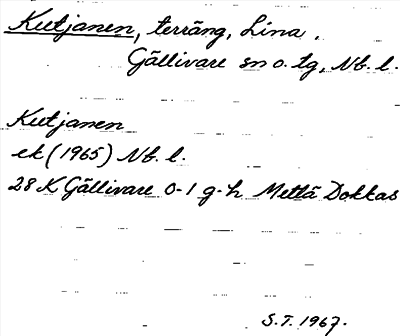 Kutjanen, terräng, Lina.
Gällivare sn o. tg, Nb. l.
Kutjanen
ek (1965) Nb. l.
28 K Gällivare 0-1 g-h Mettä Dokkas
S.T. 1967.